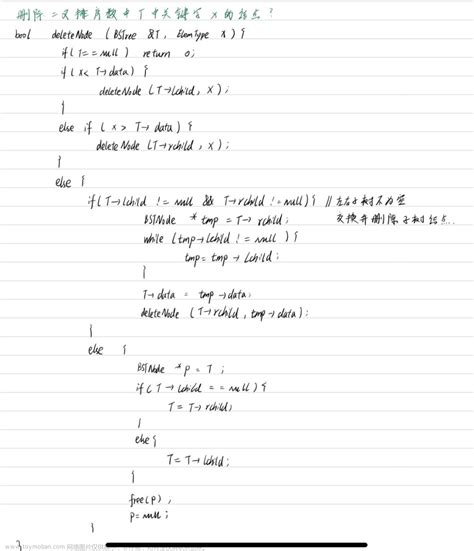 删除二叉排序数中T中关键字x的结点?
bool deleteNode (BSTree &T, ElemType x) {
if (T == null) return 0;
if (x < T->data) {
deleteNode (T->lchild, x);
}
else if (x > T->data) {
deleteNode (T->rchild, x);
}
else {
if (T->lchild != null && T->rchild != null) { // 左右子树不为空
BSTNode *tmp = T->rchild; 交换并删除子树结点..
while (tmp->lchild != null) {
tmp = tmp->lchild;
}
T->data = tmp->data;
deleteNode (T->rchild, tmp->data);
}
else {
BSTNode *p = T;
if (T->lchild == null) {
T = T->rchild;
}
else {
T = T->lchild;
}
free(p);
p = null;
}
}
www.toymoban.com 网络图片仅供